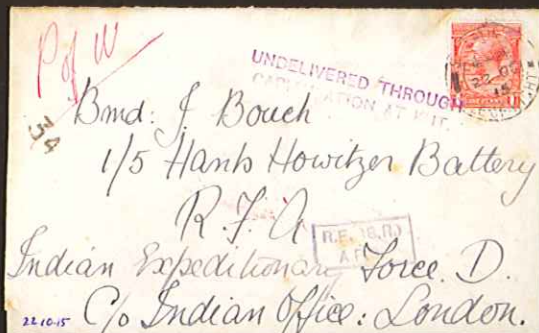 P of W
UNDELIVERED THROUGH
CAPITULATION AT KUT.
34
Bmd: J Bouch
1/5 Hants Howitzer Battery
R.F.A
R.E. (S.R.)
Indian Expeditionary Force. D.
C/o Indian Office: London.
22.10.15
22 OC
15